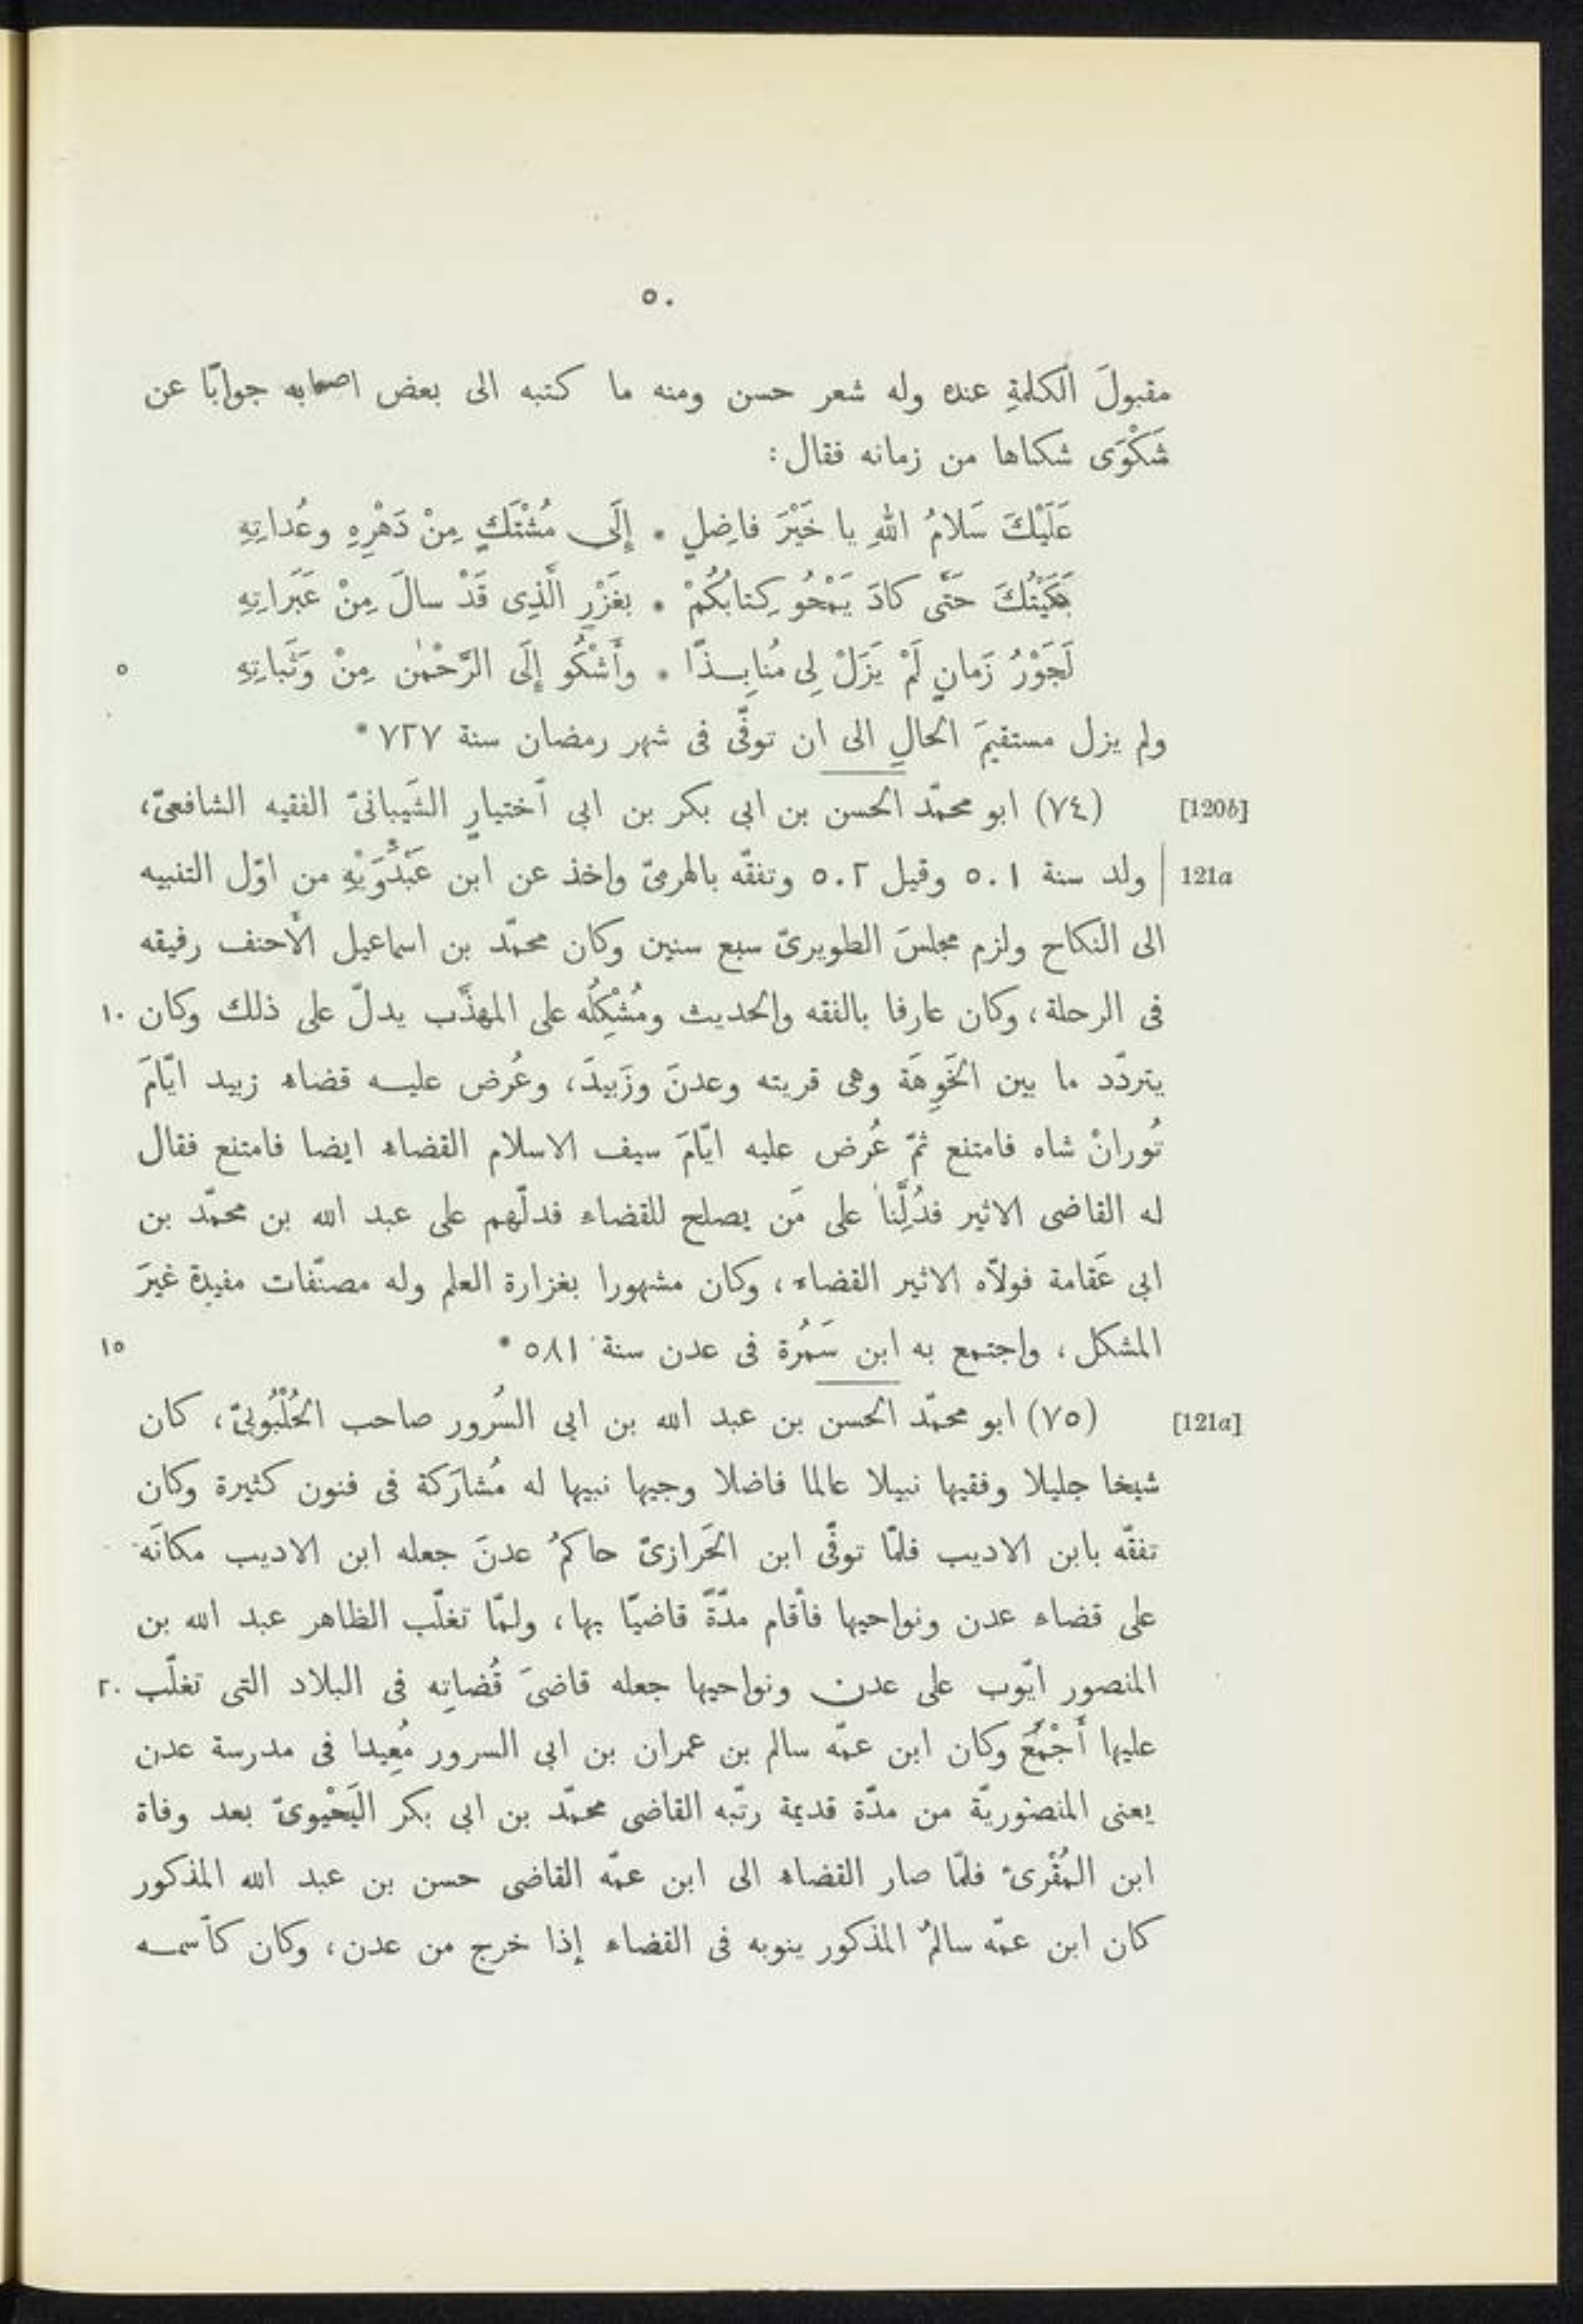 ٥٠
مقبولَ الكلمةِ عنده وله شعر حسن ومنه ما كتبه الى بعض اصحابه جوابًا عن
شَكْوَى شكاها من زمانه فقال:
عَلَيْكَ سَلامُ اللهِ يا خَيْرَ فاضِلٍ * إِلَى مُشْتَكٍ مِنْ دَهْرِهِ وعُداتِهِ
بَكَيْتُكَ حَتَّى كادَ يَمْحُو كِتابُكُمْ * بغَزْرِ الَّذِى قَدْ سالَ مِنْ عَبَراتِهِ
لَجَوْرُ زَمانٍ لَمْ يَزَلْ لِى مُنابِـذًا * وأَشْكُو إِلَى الرَّحْمٰن مِنْ وَثَباتِهِ ٥
ولم يزل مستقيمَ الحالِ الى ان توفّى فى شهر رمضان سنة ٧٢٧*
[120b] (٧٤) ابو محمّد الحسن بن ابى بكر بن ابى اختيار الشَيبانىّ الفقيه الشافعىّ،
121a | ولد سنة ٥٠١ وقيل ٥٠٢ وتفقّه بالهرمىّ واخذ عن ابن عَبْدُوَيْهِ من اوّل التنبيه
الى النكاح ولزم مجلسَ الطويرىّ سبع سنين وكان محمّد بن اسماعيل الأحنف رفيقه
فى الرحلة، وكان عارفا بالفقه والحديث ومُشْكِلُه على المهذَّب يدلّ على ذلك وكان ١٠
يتردّد ما بين الخَوِهَة وهى قريته وعدنَ وزَبيدَ، وعُرض عليـه قضاء زبيد ايّامَ
تُورانْ شاه فامتنع ثمّ عُرض عليه ايّامَ سيف الاسلام القضاء ايضا فامتنع فقال
له القاضى الاثير فدُلَّنا على مَن يصلح للقضاء فدلّهم على عبد الله بن محمّد بن
ابى عَقامة فولاّه الاثير القضاء، وكان مشهورا بغزارة العلم وله مصنّفات مفيدة غيرَ
المشكل، واجتمع به ابن سَمُرة فى عدن سنة ٥٨١* ١٥
[121a] (٧٥) ابو محمّد الحسن بن عبد الله بن ابى السُرور صاحب الحُلْبُوبىّ، كان
شيخا جليلا وفقيها نبيلا عالما فاضلا وجيها نبيها له مُشارَكة فى فنون كثيرة وكان
تفقّه بابن الاديب فلمّا توفّى ابن الحَرازىّ حاكمُ عدنَ جعله ابن الاديب مكانَه
على قضاء عدن ونواحيها فأقام مدّةً قاضيًا بها، ولمّا تغلّب الظاهر عبد الله بن
المنصور ايّوب على عدن ونواحيها جعله قاضىَ قُضاتِه فى البلاد التى تغلّب ٢٠
عليها أَجْمَعَ وكان ابن عمّه سالم بن عمران بن ابى السرور مُعِيدا فى مدرسة عدن
يعنى المنصوريّة من مدّة قديمة رتّبه القاضى محمّد بن ابى بكر اليَحْيوىّ بعد وفاة
ابن المُقْرِئ فلمّا صار القضاء الى ابن عمّه القاضى حسن بن عبد الله المذكور
كان ابن عمّه سالمٌ المذكور ينوبه فى القضاء إذا خرج من عدن، وكان كاٰسمـه